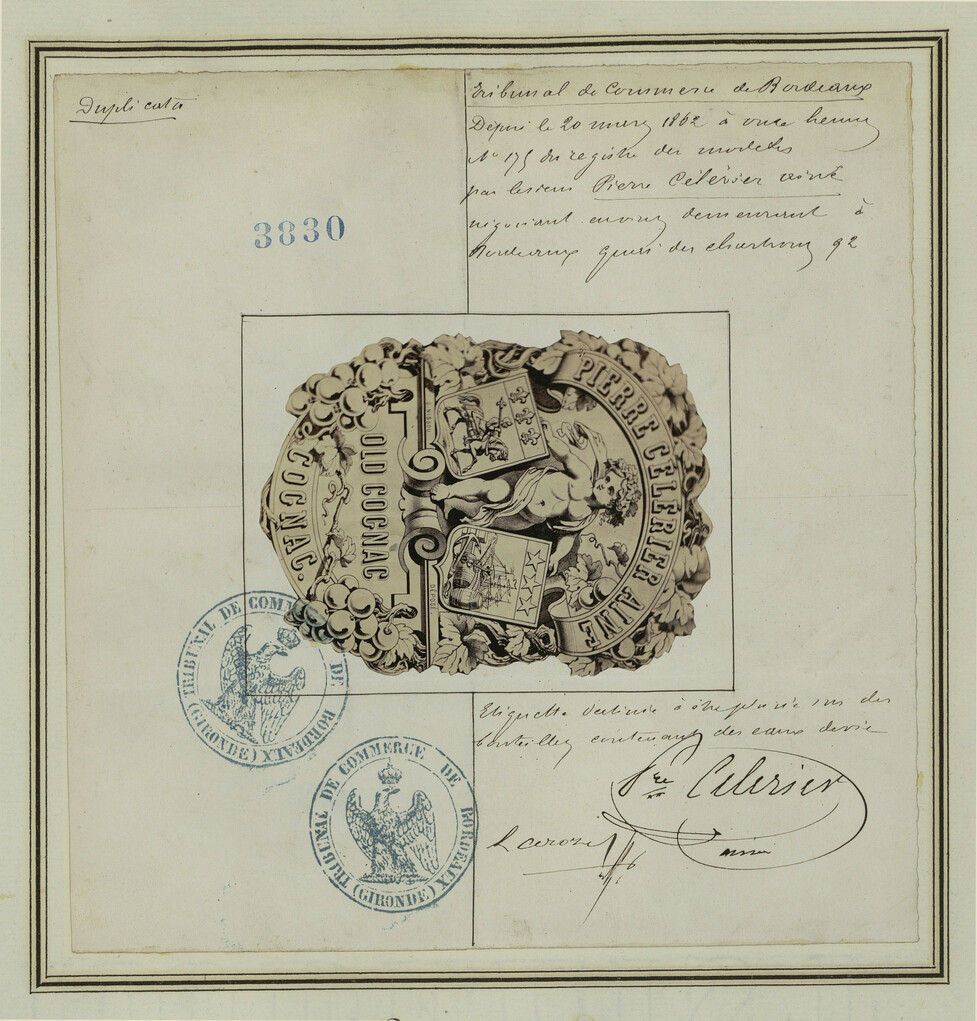 Duplicata
Tribunal de Commerce de Bordeaux
Déposé le 20 mars 1862 à onze heures
N° 175 du registre des modèles
par le sieur Pierre Célérier ainé
négociant demeurant à
Bordeaux quai des chartrons 92
3830
PIERRE CÉLERIER AINÉ
OLD COGNAC
COGNAC.
TRIBUNAL DE COMMERCE DE BORDEAUX
(GIRONDE)
Etiquette destinée à être placée sur des
bouteilles contenant des eaux de vie
TRIBUNAL DE COMMERCE DE BORDEAUX
(GIRONDE)
Pre Célérier
ainé